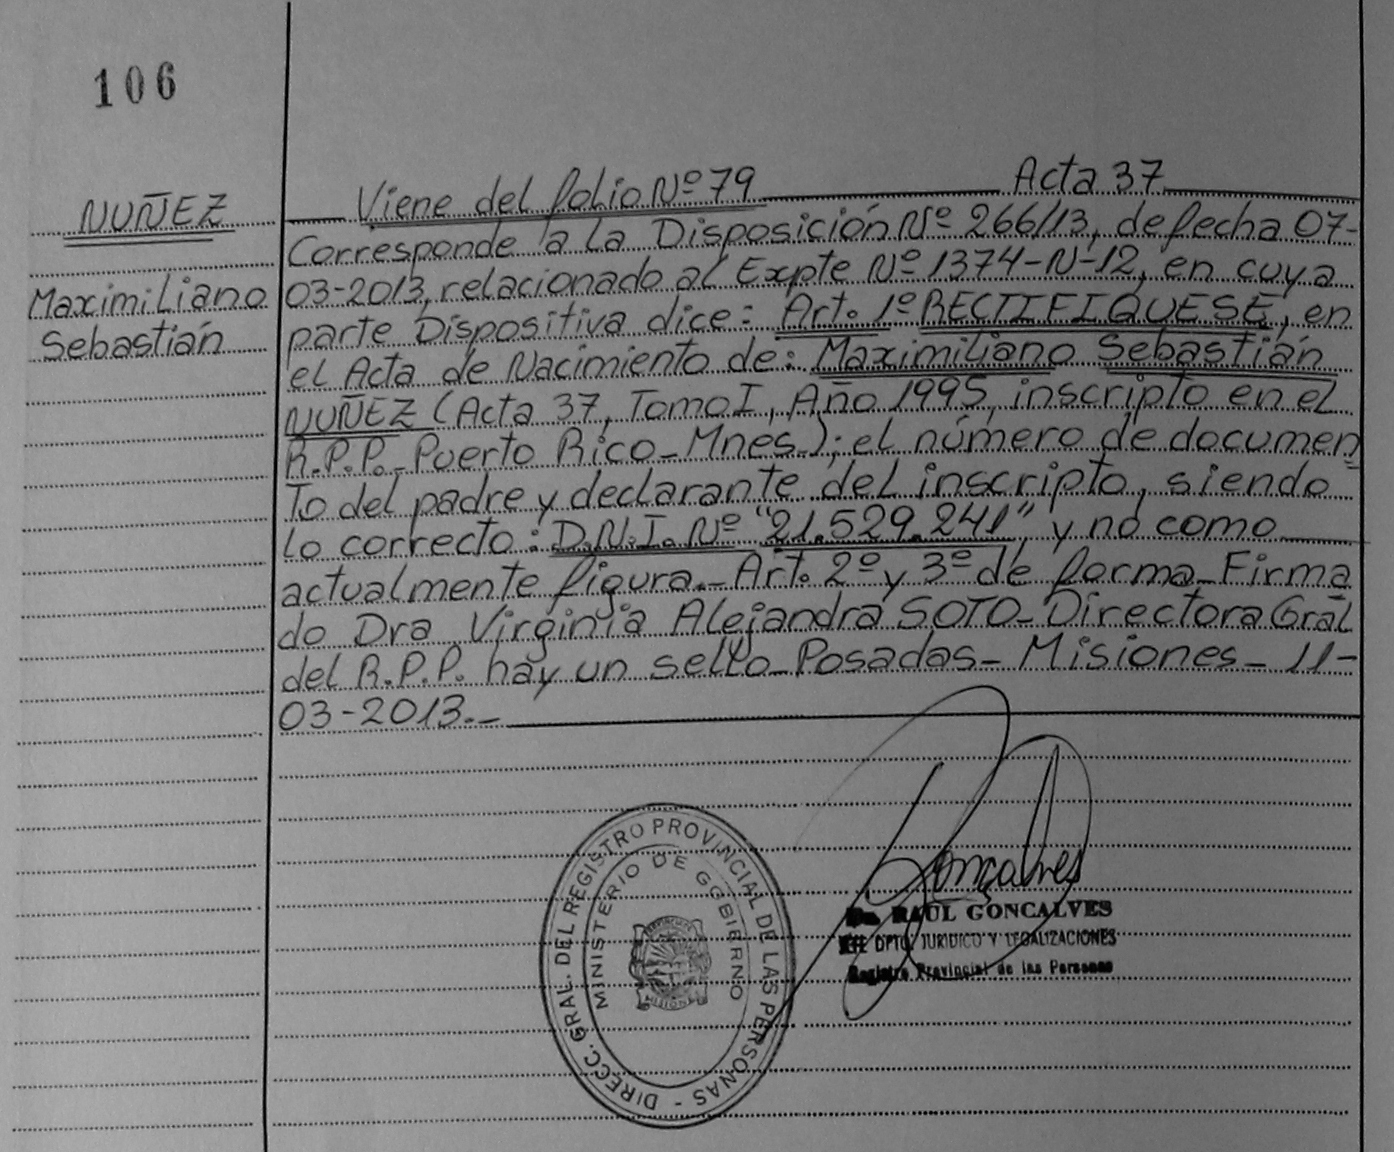 106
NUÑEZ
Maximiliano
Sebastián
Viene del folio Nº 79 Acta 37
Corresponde a la Disposición Nº 266/13, de fecha 07-
03-2013, relacionado al Expte Nº 1374-N-12, en cuya
parte Dispositiva dice: Art. 1º RECTIFIQUESE, en
el Acta de Nacimiento de: Maximiliano Sebastián
NUÑEZ (Acta 37, Tomo I, Año 1995, inscripto en el
R.P.P. Puerto Rico - Mnes.); el número de documen
to del padre y declarante del inscripto, siendo
lo correcto: D.N.I. Nº "21.529.241" y no como
actualmente figura.- Art. 2º y 3º de forma - Firma
do Dra Virginia Alejandra SOTO - Directora Gral
del R.P.P. hay un sello - Posadas - Misiones - 11-
03-2013.-
DIRECC. GRAL. DEL REGISTRO PROVINCIAL DE LAS PERSONAS -
MINISTERIO DE GOBIERNO
MISIONES
Goncalves
Dr. RAUL GONCALVES
JEFE DPTO. JURIDICO Y LEGALIZACIONES
Registro Provincial de las Personas